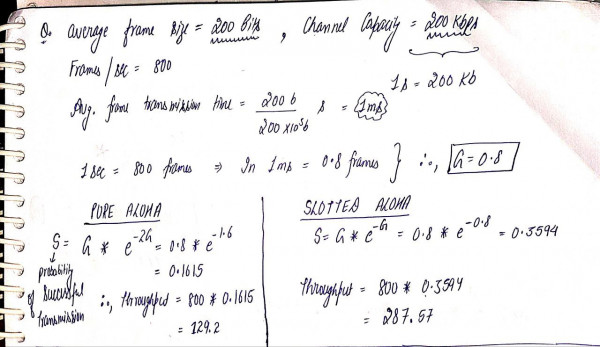 Q. Average frame size = 200 bits , Channel Capacity = 200 Kbps
Frames/sec = 800
1s = 200 Kb
Avg. frame transmission time = 200 b / 200 x 10³b s = 1ms
1 sec = 800 frames ⇒ In 1ms = 0.8 frames } ∴, G = 0.8
PURE ALOHA
S = G * e^-2G = 0.8 * e^-1.6
= 0.1615
↓
probability
of successful
transmission
∴, throughput = 800 * 0.1615
= 129.2
SLOTTED ALOHA
S = G * e^-G = 0.8 * e^-0.8 = 0.3594
throughput = 800 * 0.3594
= 287.57